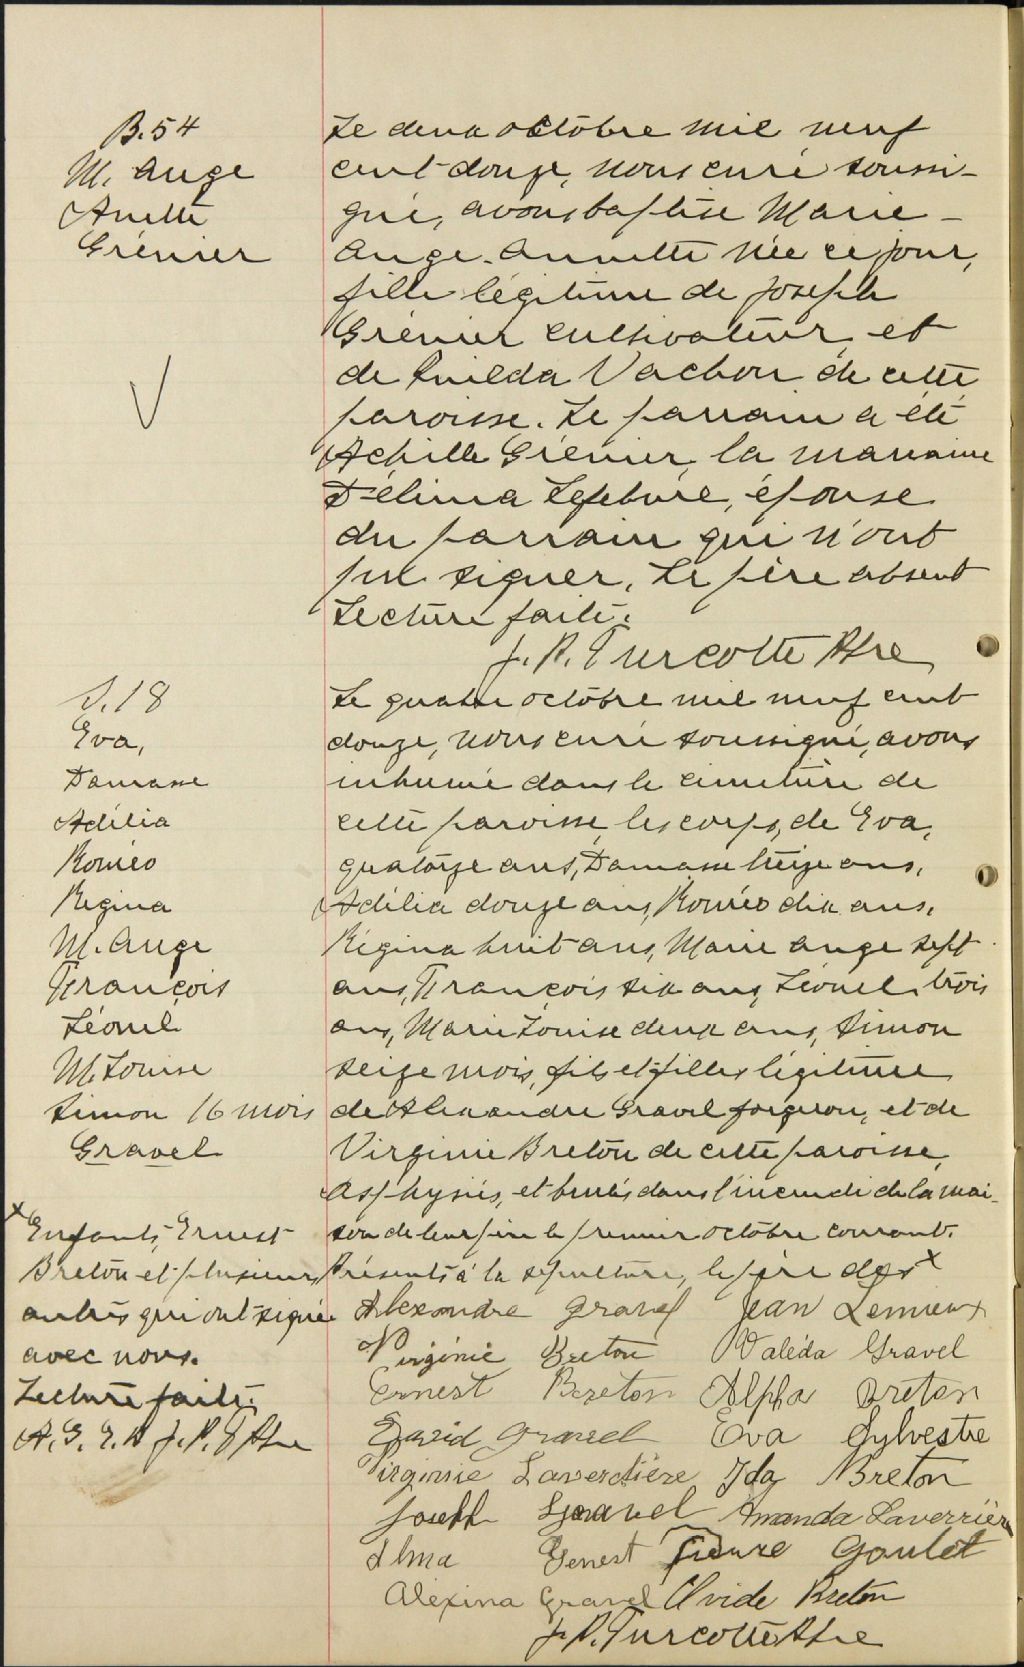 B.54
M. Ange
Anette
Grénier
Le deux octobre mil neuf
cent douze, nous curé soussi-
gné, avons baptisé Marie-
Ange-Annette née ce jour,
fille légitime de Joseph
Grénier cultivateur et
de Vachon de cette
paroisse. Le parrain a été
Achille Grénier, la marraine
Délima Lefebvre, épouse
du parrain qui n'ont
pu signer. Le père absent
Lecture faite.
J. P. Turcotte Ptre
S.18
Eva,
Damasse
Adélia
Roméo
Régina
M. Ange
François
Léonel
M. Louise
Simon 16 mois
Gravel
Le quatre octobre mil neuf cent
douze, nous curé soussigné, avons
inhumé dans le cimetière de
cette paroisse, les corps, de Eva,
quatorze ans, Damasse treize ans,
Adélia douze ans, Roméo dix ans,
Régina huit ans, Marie ange sept
ans, François six ans, Léonel trois
ans, Marie Louise deux ans, Simon
seize mois, fils et filles légitime
de Alexandre Gravel forgeron, et de
Virginie Breton de cette paroisse,
asphyxiés, et brulés dans l'incendi de la mai-
son de leur père le premier octobre courant.
Présents à la sépulture, le père des x
x Enfants, Ernest
Breton et plusieurs
autres qui ont signé
avec nous.
Lecture faite.
A. G. E. B J. P. T Ptre
Alexandre Gravel Jean Lemieux
Virginie Breton Waléda Gravel
Ernest Breton Alpha Breton
David Gravel Eva Sylvestre
Virginie Laverdière Ida Breton
Joseph Gravel Amanda Laverrière
Alma Genest Pierre Goulet
Alexina Gravel Ovide Breton
J. P. Turcotte Ptre